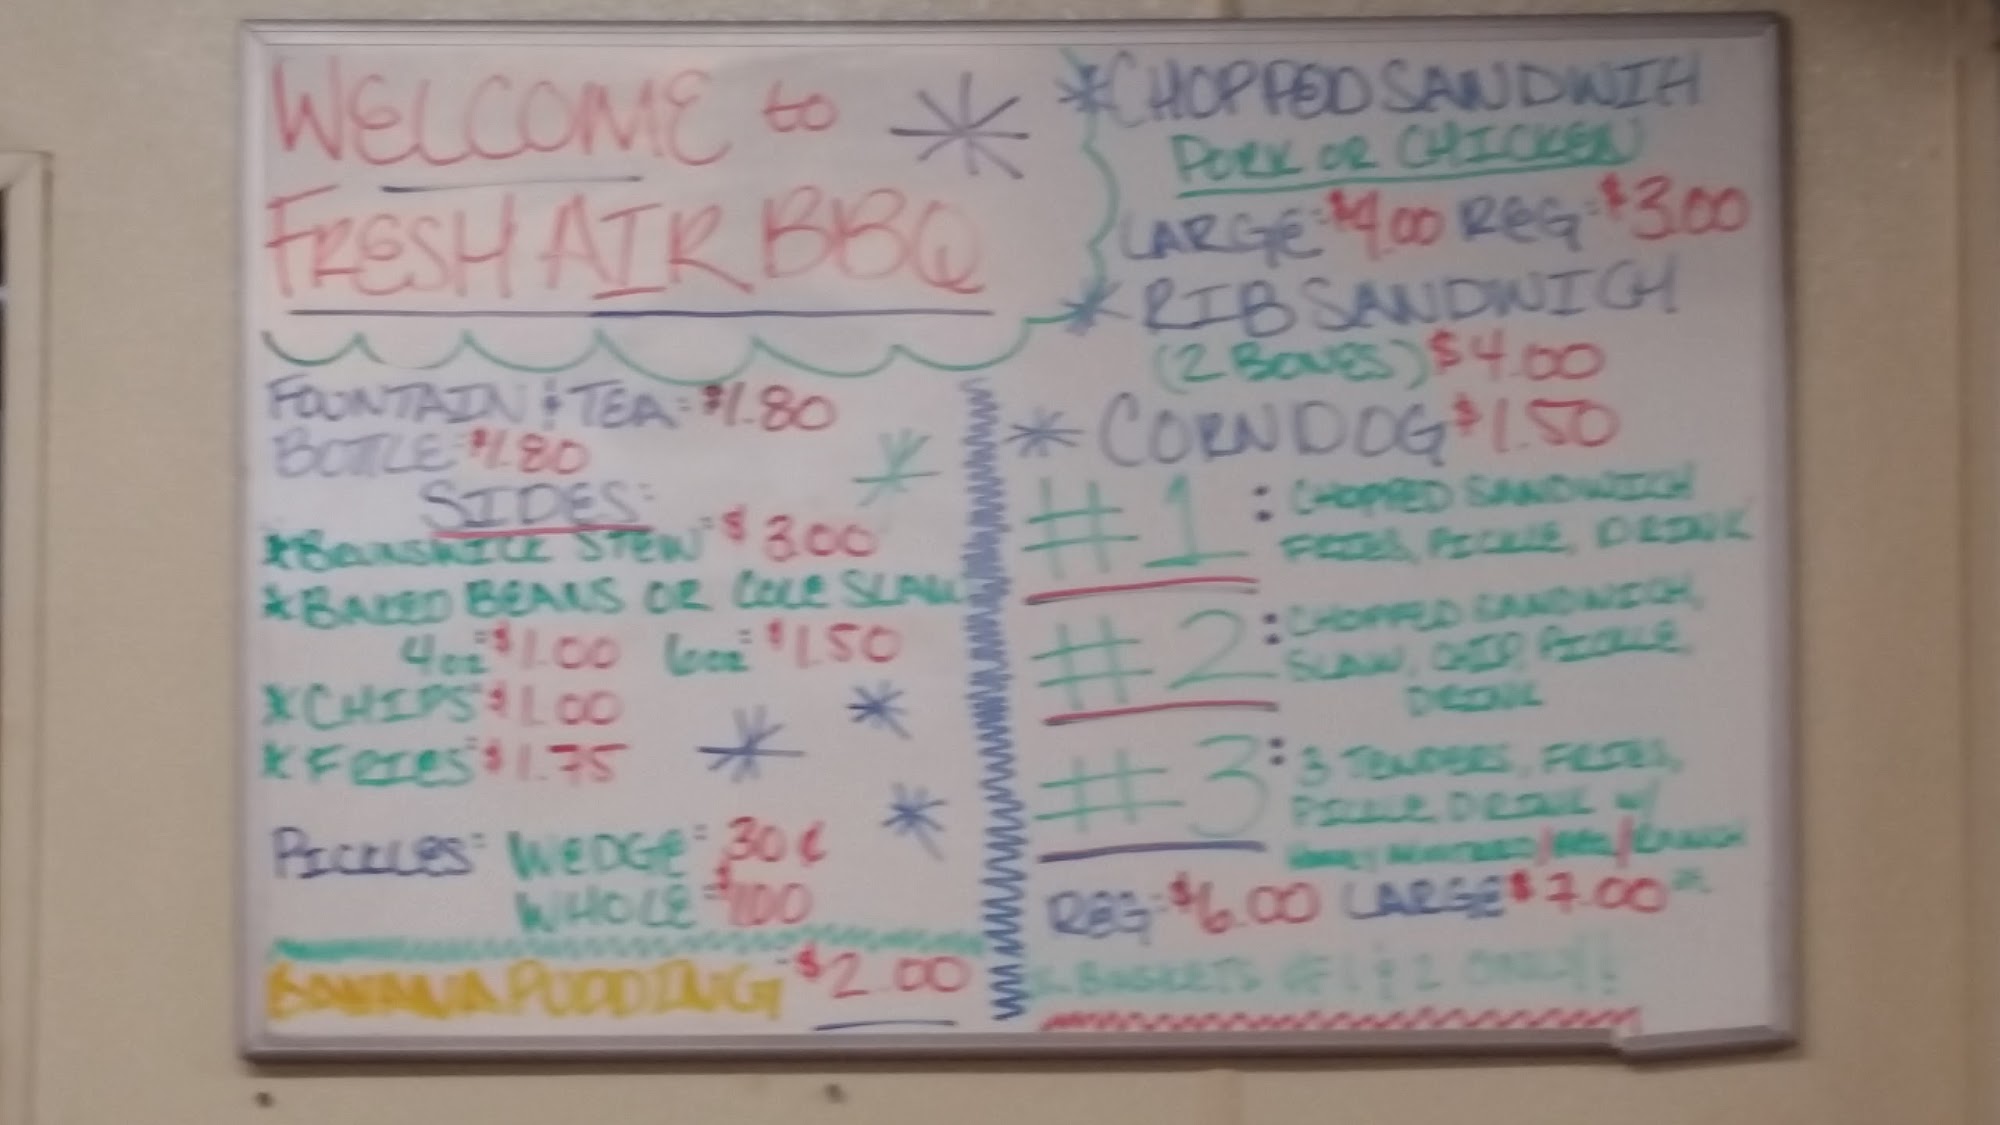 WELCOME to
FRESH AIR BBQ
FOUNTAIN & TEA: $1.80
BOTTLE: $1.80
SIDES:
*BRUNSWICK STEW: $3.00
*BAKED BEANS OR COLE SLAW
4oz: $1.00 6oz: $1.50
*CHIPS: $1.00
*FRIES: $1.75
PICKLES: WEDGE: 30¢
WHOLE: $1.00
BANANA PUDDING: $2.00
*CHOPPED SANDWICH
PORK OR CHICKEN
LARGE: $4.00 REG: $3.00
*RIB SANDWICH
(2 BONES) $4.00
*CORNDOG $1.50
#1: CHOPPED SANDWICH
FRIES, PICKLE, DRINK
#2: CHOPPED SANDWICH,
SLAW, CHIP, PICKLE,
DRINK
#3: 3 TENDERS, FRIES,
PICKLE, DRINK w/
HONEY MUSTARD/BBQ/RANCH
REG: $6.00 LARGE $7.00
BASKETS #1 & 2 ONLY!!